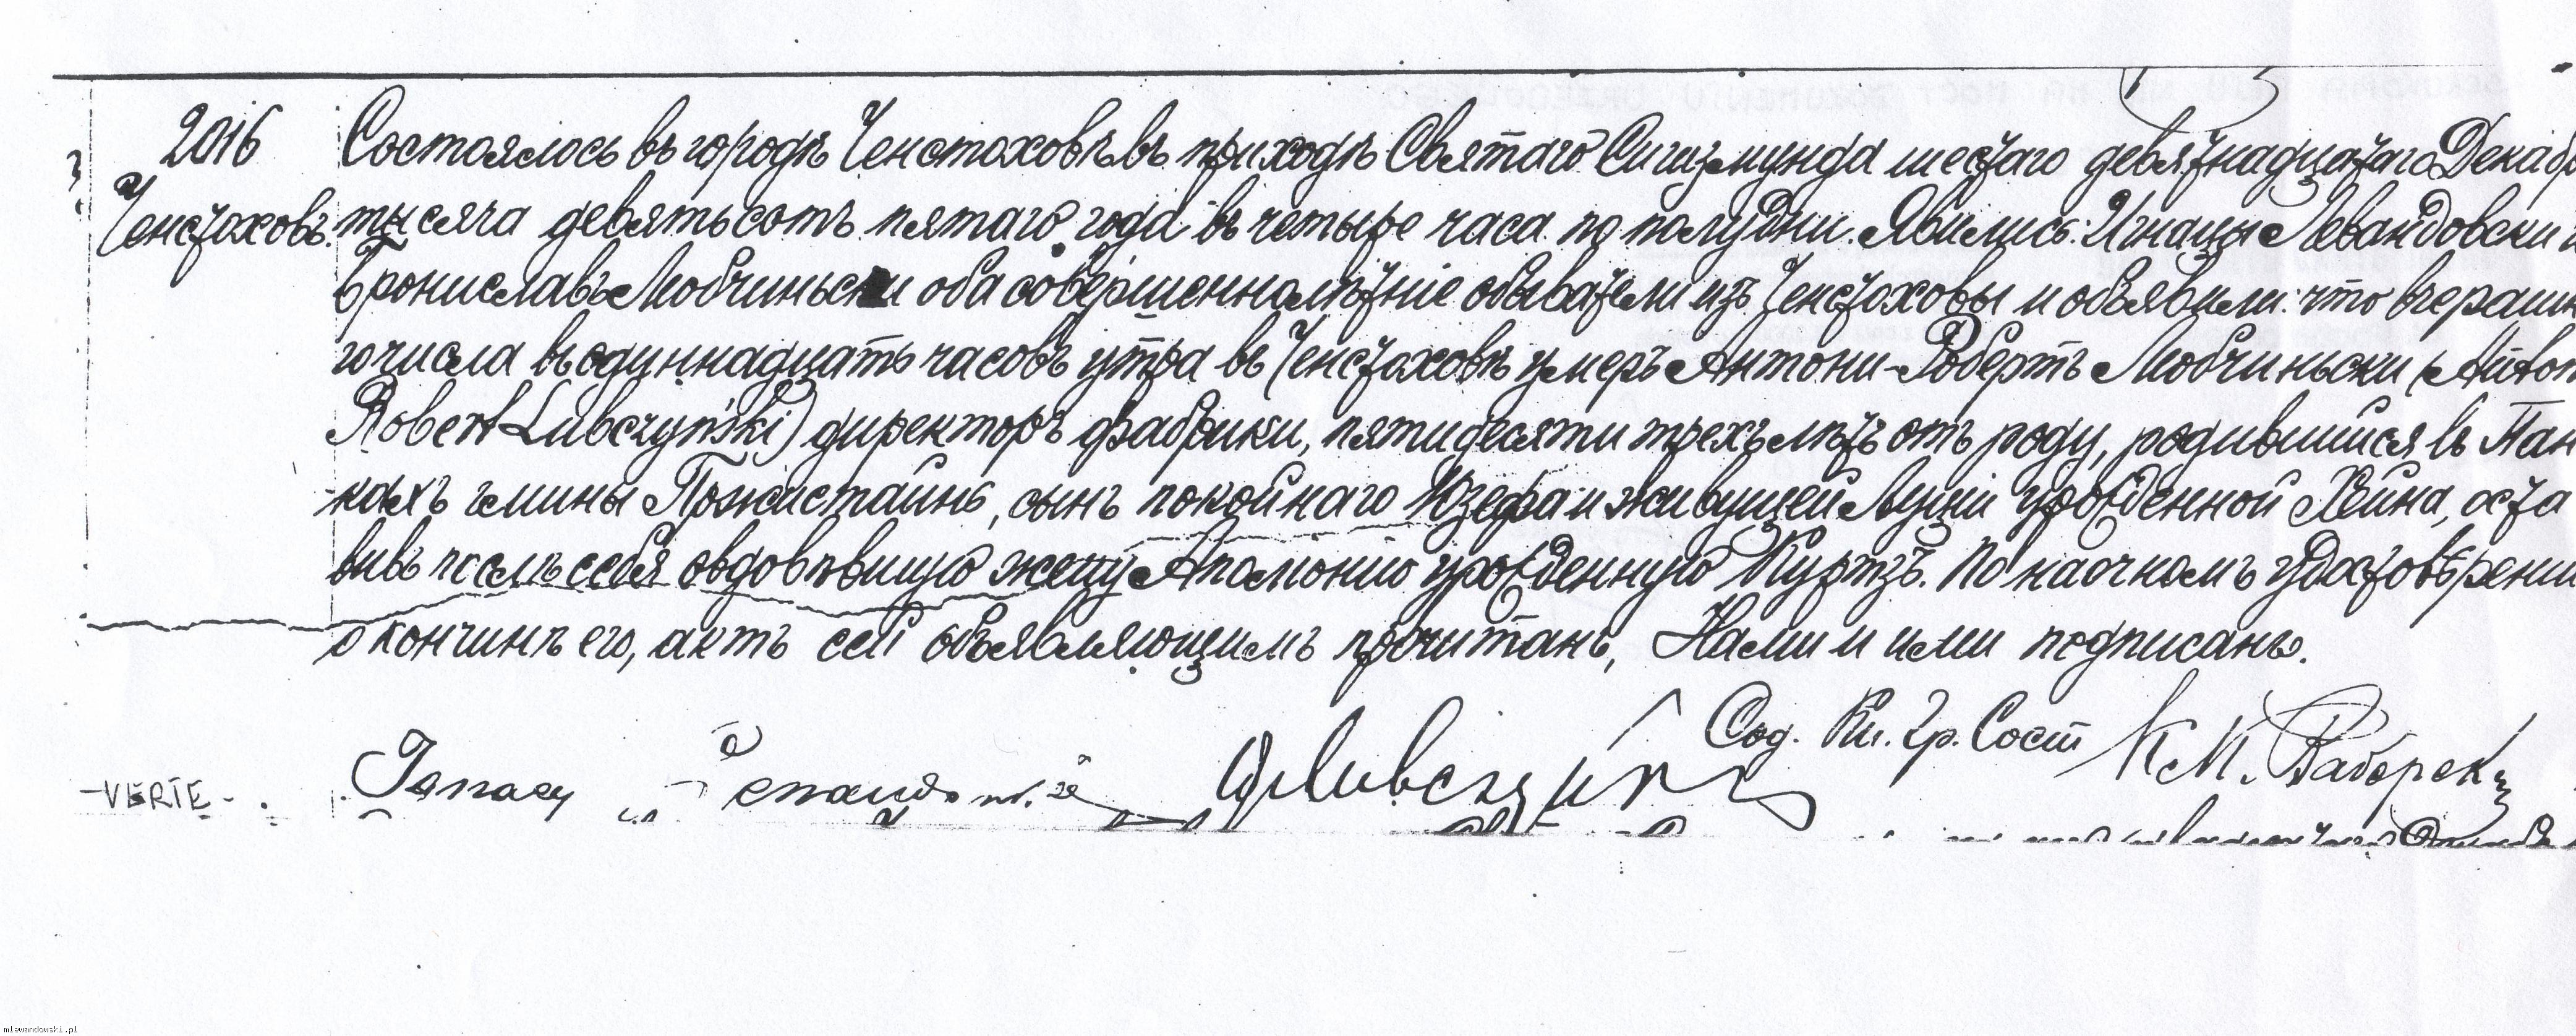 2016
Ченстоховъ.
Состоялось въ городѣ Ченстоховѣ въ приходѣ Святаго Сигизмунда шестаго девятнадцатаго Декабр
тысяча девятьсотъ пятаго года въ четыре часа по полудни. Явились: Игнацы Левандовски и
Брониславъ Любчиньски оба совершеннолѣтніе обыватели изъ Ченстоховы и объявили: что вчерашн
го числа въ одиннадцать часовъ утра въ Ченстоховѣ умеръ Антони-Робертъ Любчиньски (Anton
Robert Lubczyński) директоръ фабрики, пятидесяти трехъ лѣтъ отъ роду, родившійся въ Пан
кахъ гмины Пржистайнь, сынъ покойнаго Юзефа и живущей Луціи урожденной Хейна, оста
вивъ послѣ себя овдовѣвшую жену Аполонію урожденную Куртзъ. По наочномъ удостовѣрении
о кончинѣ его, актъ сей объявляющимъ прочитанъ, Нами и ими подписанъ.
Сод. Кн. Гр. Сост
-VERTE-
Ignacy
mlewandowski.pl